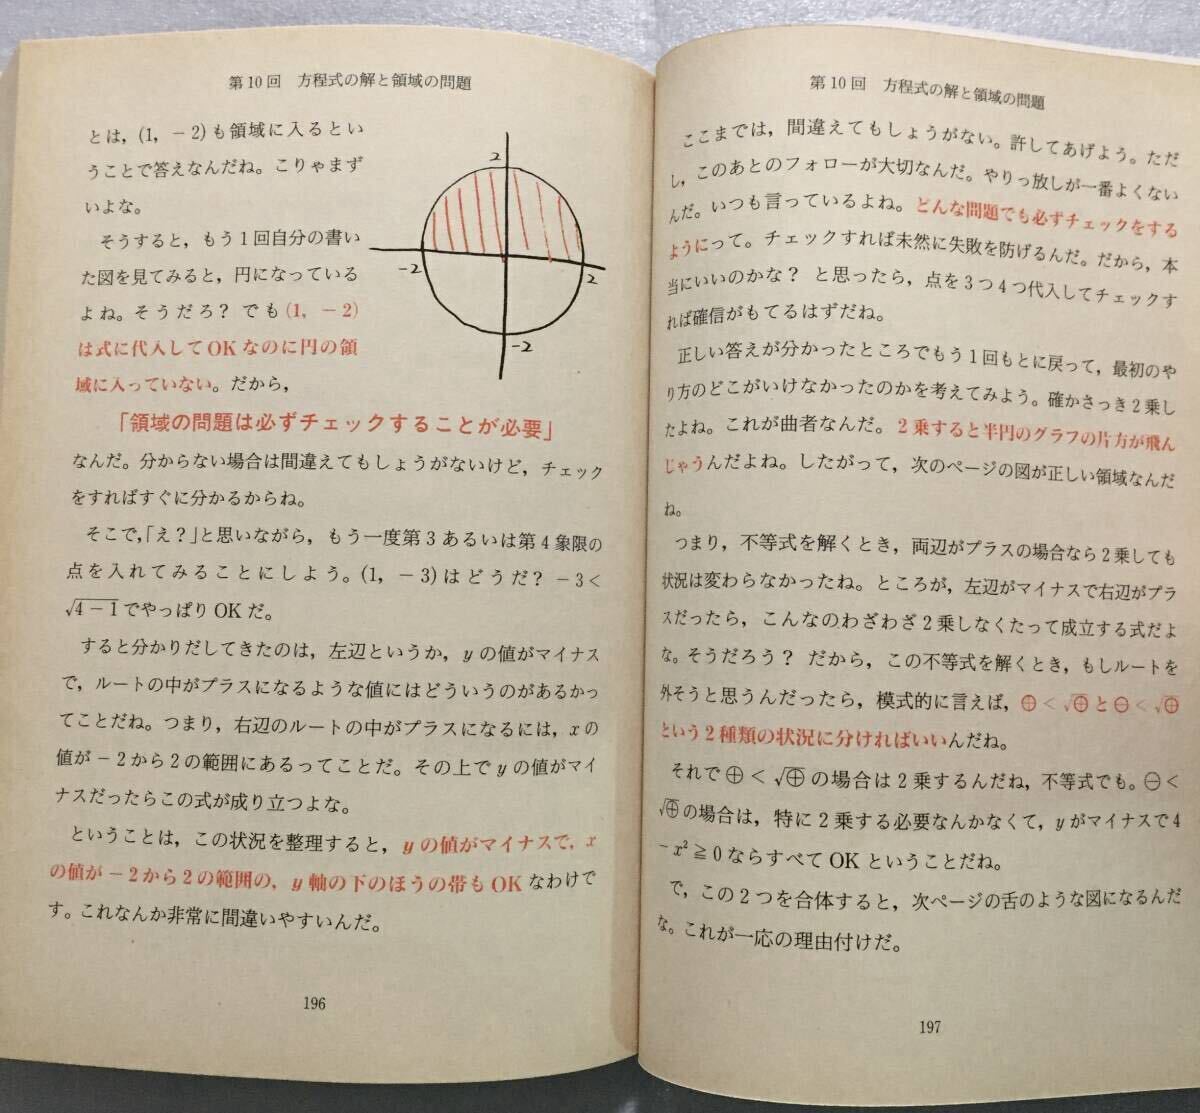 第10回 方程式の解と領域の問題
とは，(1，－2)も領域に入るとい
うことで答えなんだね。こりゃまず
いよな。
そうすると，もう1回自分の書い
た図を見てみると，円になっている
よね。そうだろ？でも(1，－2)
は式に代入してOKなのに円の領
域に入っていない。だから，
2
－2
2
－2
「領域の問題は必ずチェックすることが必要」
なんだ。分からない場合は間違えてもしょうがないけど，チェック
をすればすぐに分かるからね。
そこで，「え？」と思いながら，もう一度第3あるいは第4象限の
点を入れてみることにしよう。(1，－3)はどうだ？－3＜
√4－1でやっぱりOKだ。
すると分かりだしてきたのは，左辺というか，yの値がマイナス
で，ルートの中がプラスになるような値にはどういうのがあるかっ
てことだね。つまり，右辺のルートの中がプラスになるには，xの
値が－2から2の範囲にあるってことだ。その上でyの値がマイ
ナスだったらこの式が成り立つよな。
ということは，この状況を整理すると，yの値がマイナスで，x
の値が－2から2の範囲の，y軸の下のほうの帯もOKなわけで
す。これなんか非常に間違いやすいんだ。
196
第10回 方程式の解と領域の問題
ここまでは，間違えてもしょうがない。許してあげよう。ただ
し，このあとのフォローが大切なんだ。やりっ放しが一番よくない
んだ。いつも言っているよね。どんな問題でも必ずチェックをする
ようにって。チェックすれば未然に失敗を防げるんだ。だから，本
当にいいのかな？ と思ったら，点を3つ4つ代入してチェックす
れば確信がもてるはずだね。
正しい答えが分かったところでもう1回もとに戻って，最初のや
り方のどこがいけなかったのかを考えてみよう。確かさっき2乗し
たよね。これが曲者なんだ。2乗すると半円のグラフの片方が飛ん
じゃうんだよね。したがって，次のページの図が正しい領域なんだ
ね。
つまり，不等式を解くとき，両辺がプラスの場合なら2乗しても
状況は変わらなかったね。ところが，左辺がマイナスで右辺がプラ
スだったら，こんなのわざわざ2乗しなくたって成立する式だよ
な。そうだろう？ だから，この不等式を解くとき，もしルートを
外そうと思うんだったら，模式的に言えば，⊕＜√⊕と⊖＜√⊕
という2種類の状況に分ければいいんだね。
それで⊕＜√⊕の場合は2乗するんだね，不等式でも。⊖＜
√⊕の場合は，特に2乗する必要なんかなくて，yがマイナスで4
－x²≧0ならすべてOKということだね。
で，この2つを合体すると，次ページの舌のような図になるんだ
な。これが一応の理由付けだ。
197